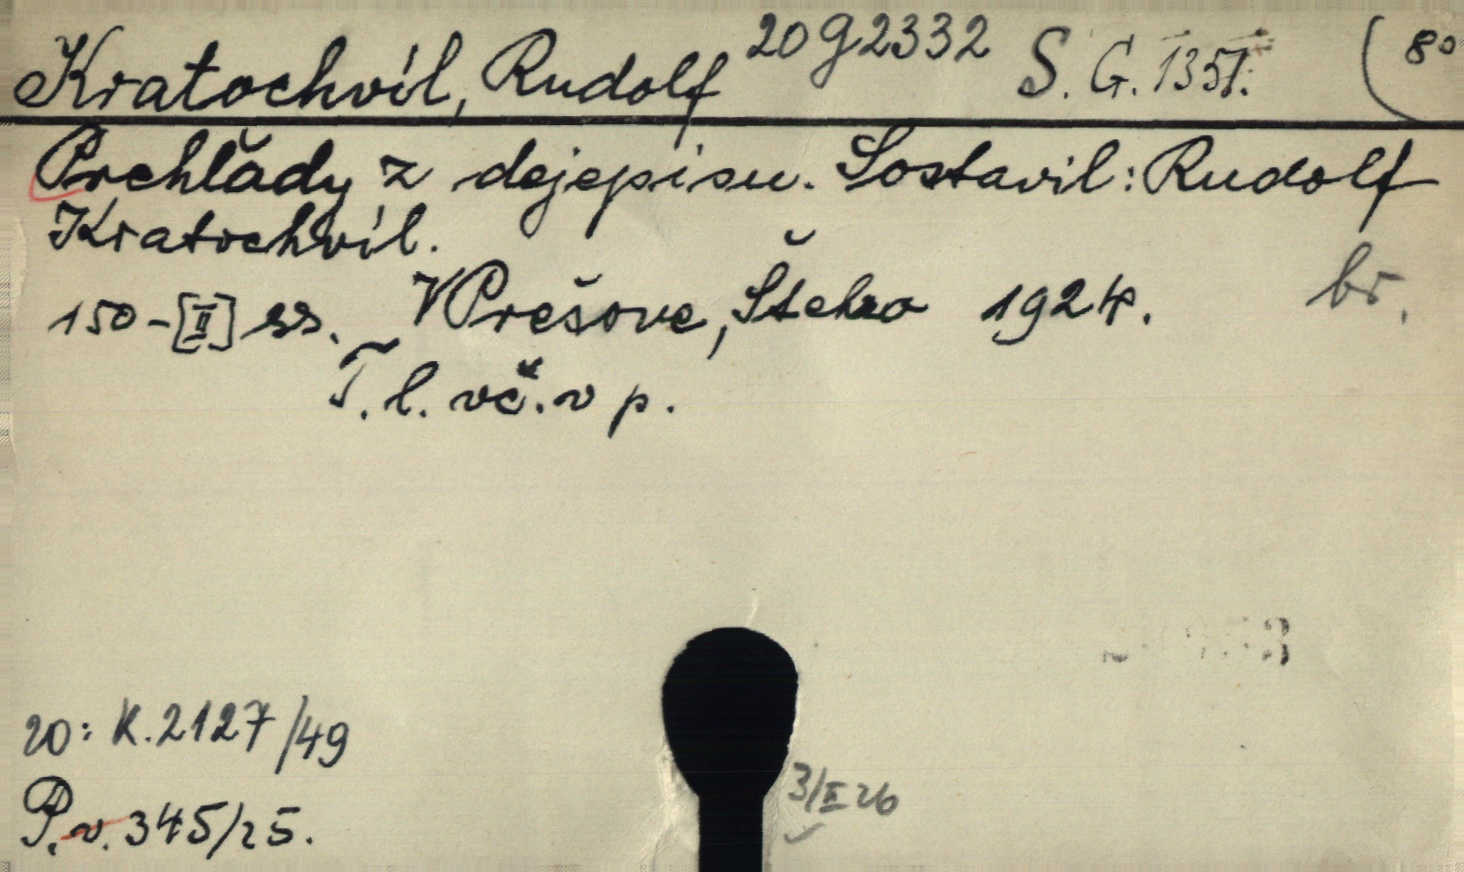 Kratochvíl, Rudolf 20 g 2332 S. G. 1351. (8°
Prehľady z dejepisu. Sostavil: Rudolf
Kratochvíl.
150-[II] ss. V Prešove, Štehr 1924. br.
T. l. vč. v p.
20: K. 2127/49
3/II 26
P. v. 345/25.